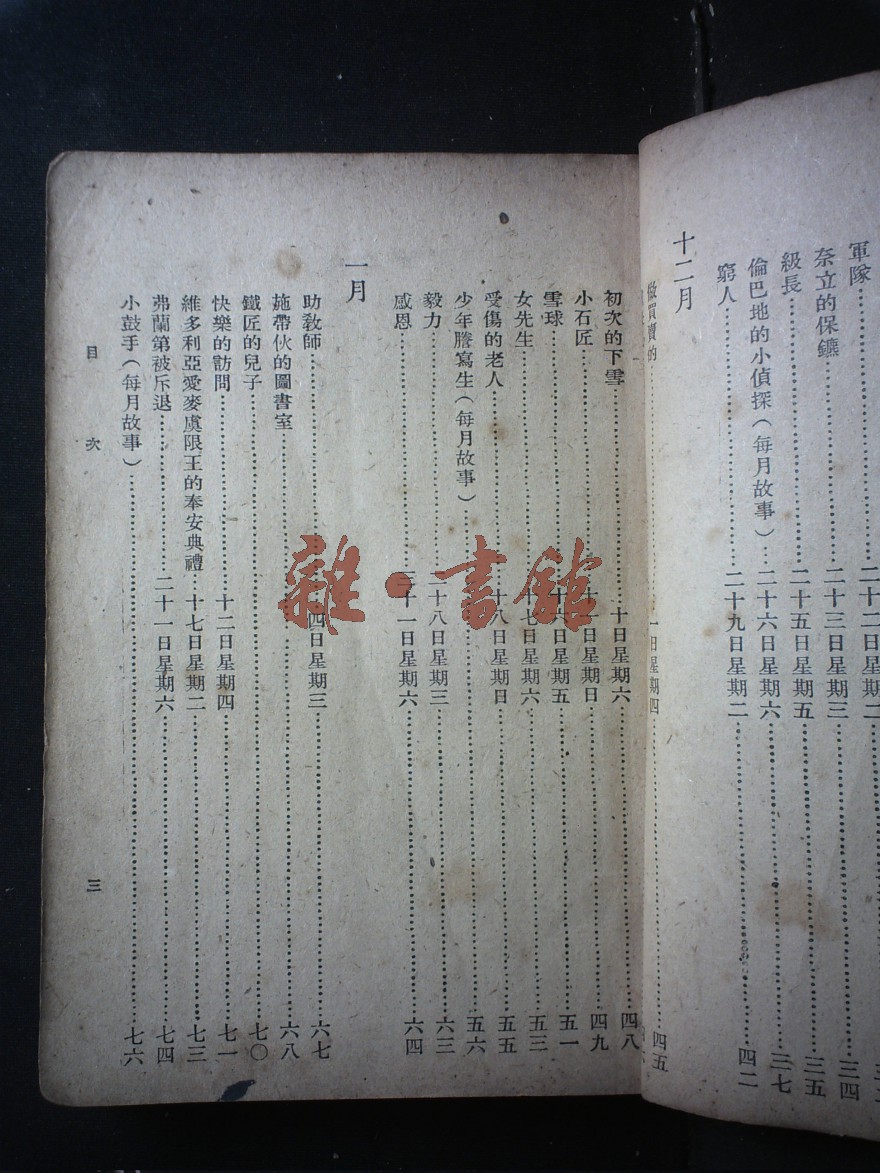 軍隊……二十二日星期二……三三
奈立的保鑣……二十三日星期三……三四
級長……二十五日星期五……三五
倫巴地的小偵探(每月故事)……二十六日星期六……三七
窮人……二十九日星期二……四二
十二月
做買賣的……一日星期四……四五
初次的下雪……十日星期六……四八
小石匠……十一日星期日……四九
雪球……十六日星期五……五一
女先生……十七日星期六……五三
受傷的老人……十八日星期日……五五
少年謄寫生(每月故事)……五六
毅力……二十八日星期三……六三
感恩……三十一日星期六……六四
一月
助教師……四日星期三……六七
施帶伙的圖書室……六八
鐵匠的兒子……七〇
快樂的訪問……十二日星期四……七一
維多利亞愛麥虞限王的奉安典禮……十七日星期二……七三
弗蘭第被斥退……二十一日星期六……七四
小鼓手(每月故事)……七六
目次
三
雜·書館